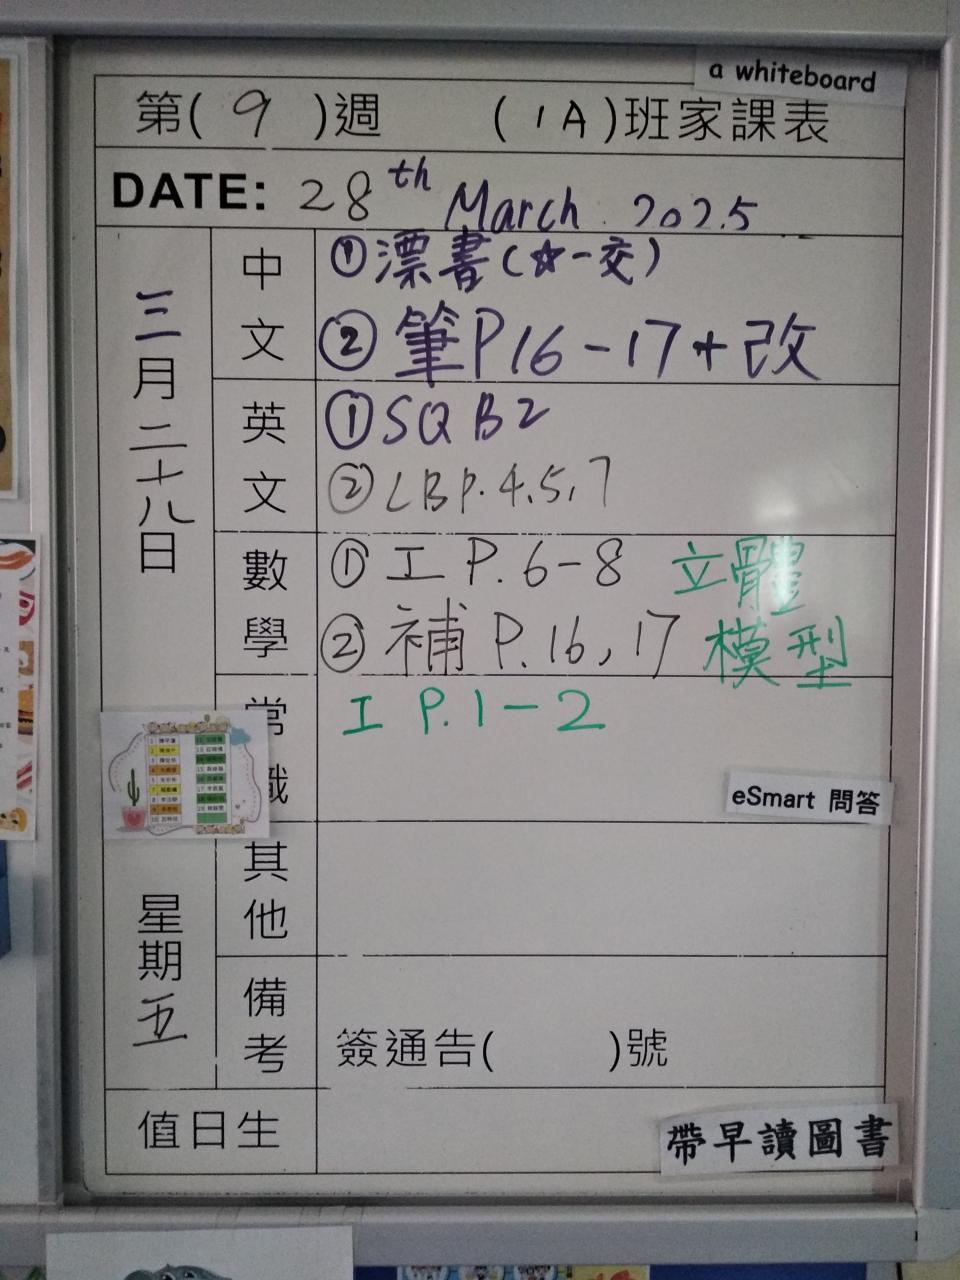 a whiteboard
第( 9 )週 (1A)班家課表
DATE: 28th March 2025
三月二十八日
星期五
中文
①漂書(☆一交)
②筆P16-17+改
英文
①SQB2
②LBP.4,5,7
數學
①工P.6-8 立體
②補P.16,17 模型
常識
工P.1-2
eSmart 問答
其他
備考
簽通告( )號
值日生
帶早讀圖書